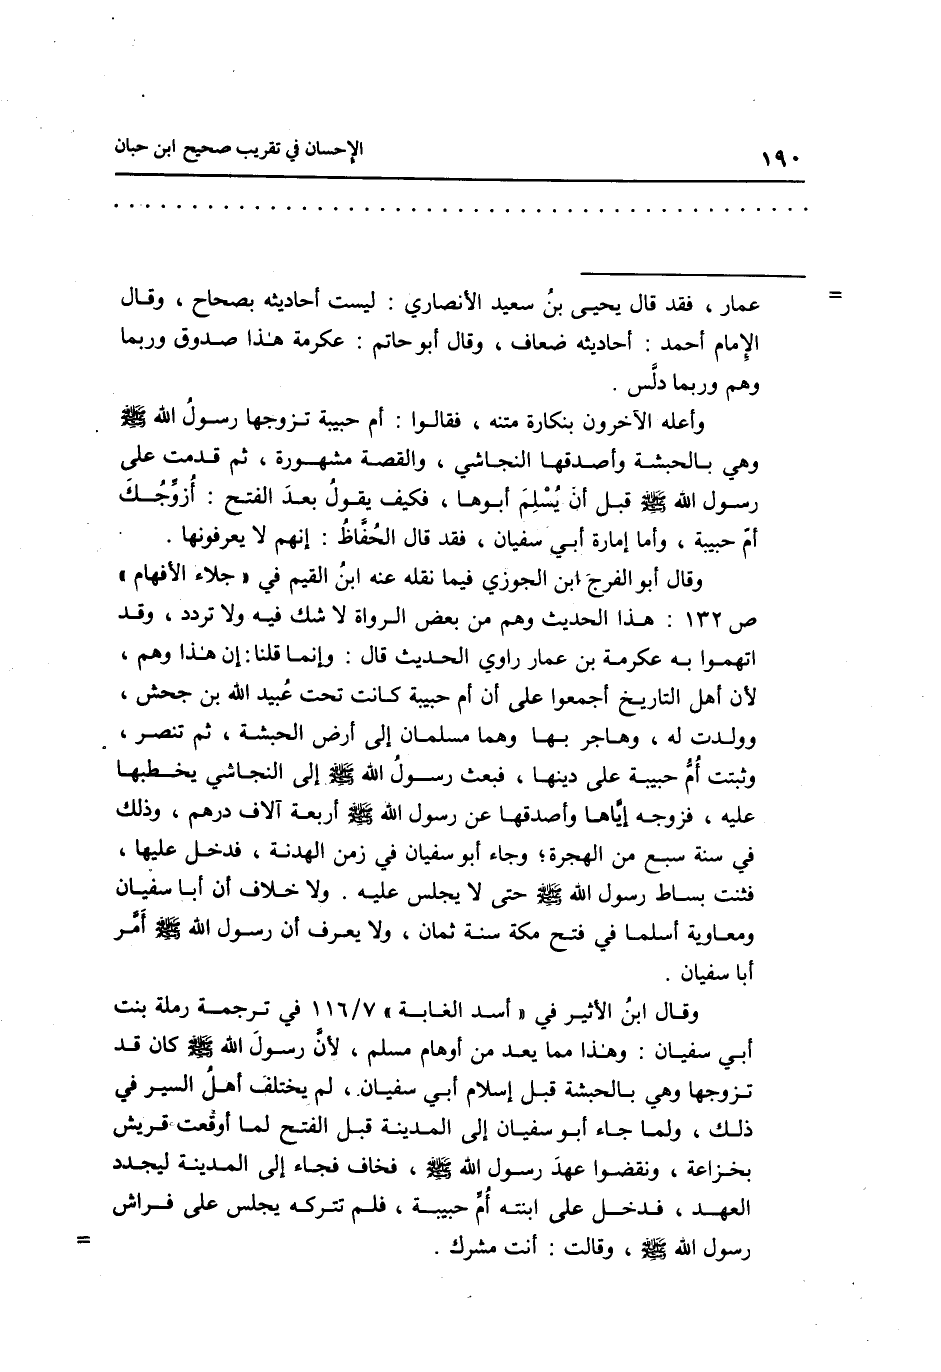 ١٩٠ الإحسان في تقريب صحيح ابن حبان
= عمار ، فقد قال يحيى بنُ سعيد الأنصاري : ليست أحاديثه بصحاح ، وقال
الإمام أحمد : أحاديثه ضعاف ، وقال أبو حاتم : عكرمة هٰذا صدوق وربما
وهم وربما دلَّس .
وأعله الآخرون بنكارة متنه ، فقالوا : أم حبيبة تزوجها رسولُ الله ﷺ
وهي بالحبشة وأصدقها النجاشي ، والقصة مشهورة ، ثم قدمت على
رسول الله ﷺ قبل أن يُسْلِمَ أبوها ، فكيف يقولُ بعدَ الفتح : أُزوِّجُكَ
أمّ حبيبة ، وأما إمارة أبي سفيان ، فقد قال الحُفَّاظُ : إنهم لا يعرفونها .
وقال أبو الفرج ابن الجوزي فيما نقله عنه ابنُ القيم في « جلاء الأفهام »
ص ١٣٢ : هٰذا الحديث وهم من بعض الرواة لا شك فيه ولا تردد ، وقد
اتهموا به عكرمة بن عمار راوي الحديث قال : وإنما قلنا : إن هٰذا وهم ،
لأن أهل التاريخ أجمعوا على أن أم حبيبة كانت تحت عُبيد الله بن جحش ،
وولدت له ، وهاجر بها وهما مسلمان إلى أرض الحبشة ، ثم تنصر ،
وثبتت أُمُّ حبيبة على دينها ، فبعث رسولُ الله ﷺ إلى النجاشي يخطبها
عليه ، فزوجه إيَّاها وأصدقها عن رسول الله ﷺ أربعة آلاف درهم ، وذلك
في سنة سبع من الهجرة؛ وجاء أبو سفيان في زمن الهدنة ، فدخل عليها ،
فثنت بساط رسول الله ﷺ حتى لا يجلس عليه . ولا خلاف أن أبا سفيان
ومعاوية أسلما في فتح مكة سنة ثمان ، ولا يعرف أن رسول الله ﷺ أمَّر
أبا سفيان .
وقال ابنُ الأثير في « أسد الغابة » ١١٦/٧ في ترجمة رملة بنت
أبي سفيان : وهٰذا مما يعد من أوهام مسلم ، لأنَّ رسولَ الله ﷺ كان قد
تزوجها وهي بالحبشة قبل إسلام أبي سفيان ، لم يختلف أهلُ السير في
ذلك ، ولما جاء أبو سفيان إلى المدينة قبل الفتح لما أوقعت قريش
بخزاعة ، ونقضوا عهدَ رسول الله ﷺ ، فخاف فجاء إلى المدينة ليجدد
العهد ، فدخل على ابنته أُمِّ حبيبة ، فلم تتركه يجلس على فراش
رسول الله ﷺ ، وقالت : أنت مشرك . =